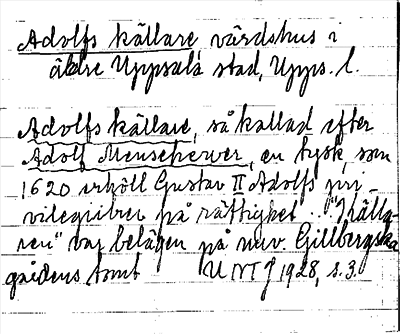 Adolfs källare värdshus i
äldre Uppsala stad, Upps. l.
Adolfs källare, så kallad efter
Adolf Menschewer, en tysk, som
1620 erhöll Gustav II Adolfs pri-
vilegiibrev på rättighet... "Källa-
ren" var belägen på nuv. Gillbergska
gårdens tomt UNT J 1928, s. 3.